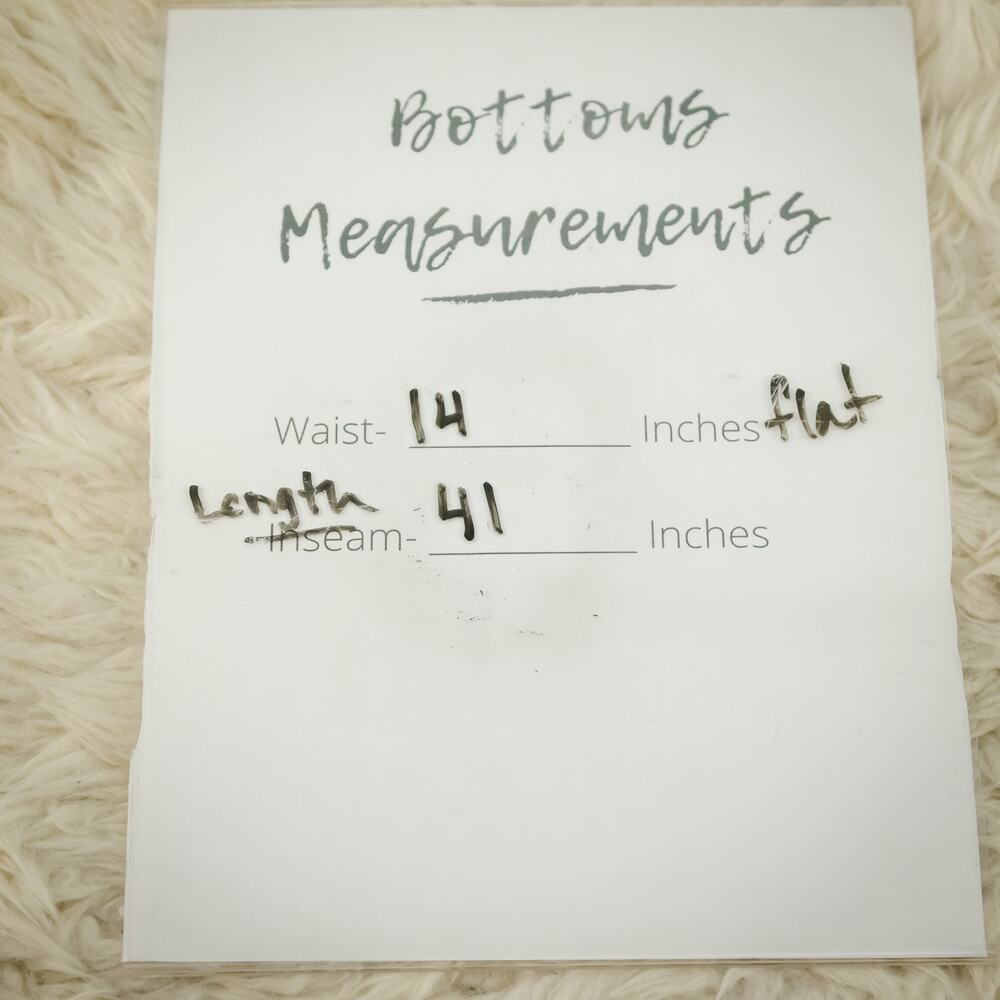 Bottoms
Measurements
Waist- 14 Inches flat
Length
Inseam- 41 Inches